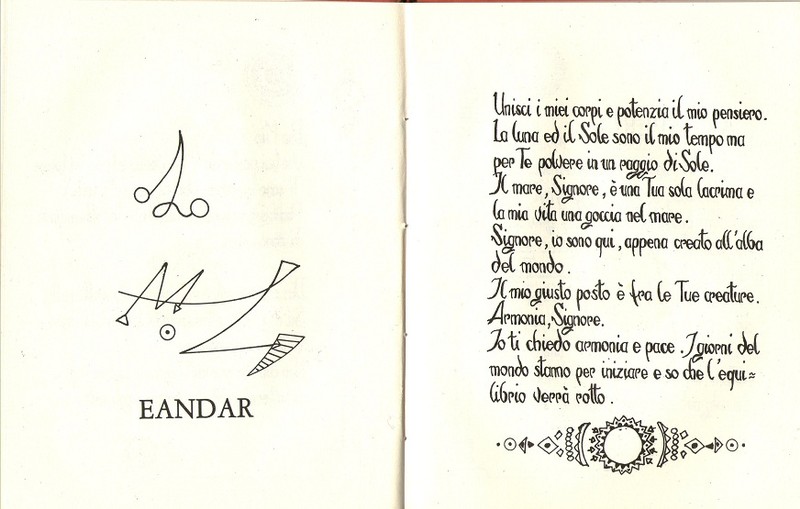 EANDAR
Unisci i miei corpi e potenzia il mio pensiero.
La luna ed il Sole sono il mio tempo ma
per Te polvere in un raggio di Sole.
Il mare, Signore, è una Tua sola lacrima e
la mia vita una goccia nel mare.
Signore, io sono qui, appena creato all'alba
del mondo.
Il mio giusto posto è fra le Tue creature.
Armonia, Signore.
Io ti chiedo armonia e pace. I giorni del
mondo stanno per iniziare e so che l'equi=
librio verrà rotto.